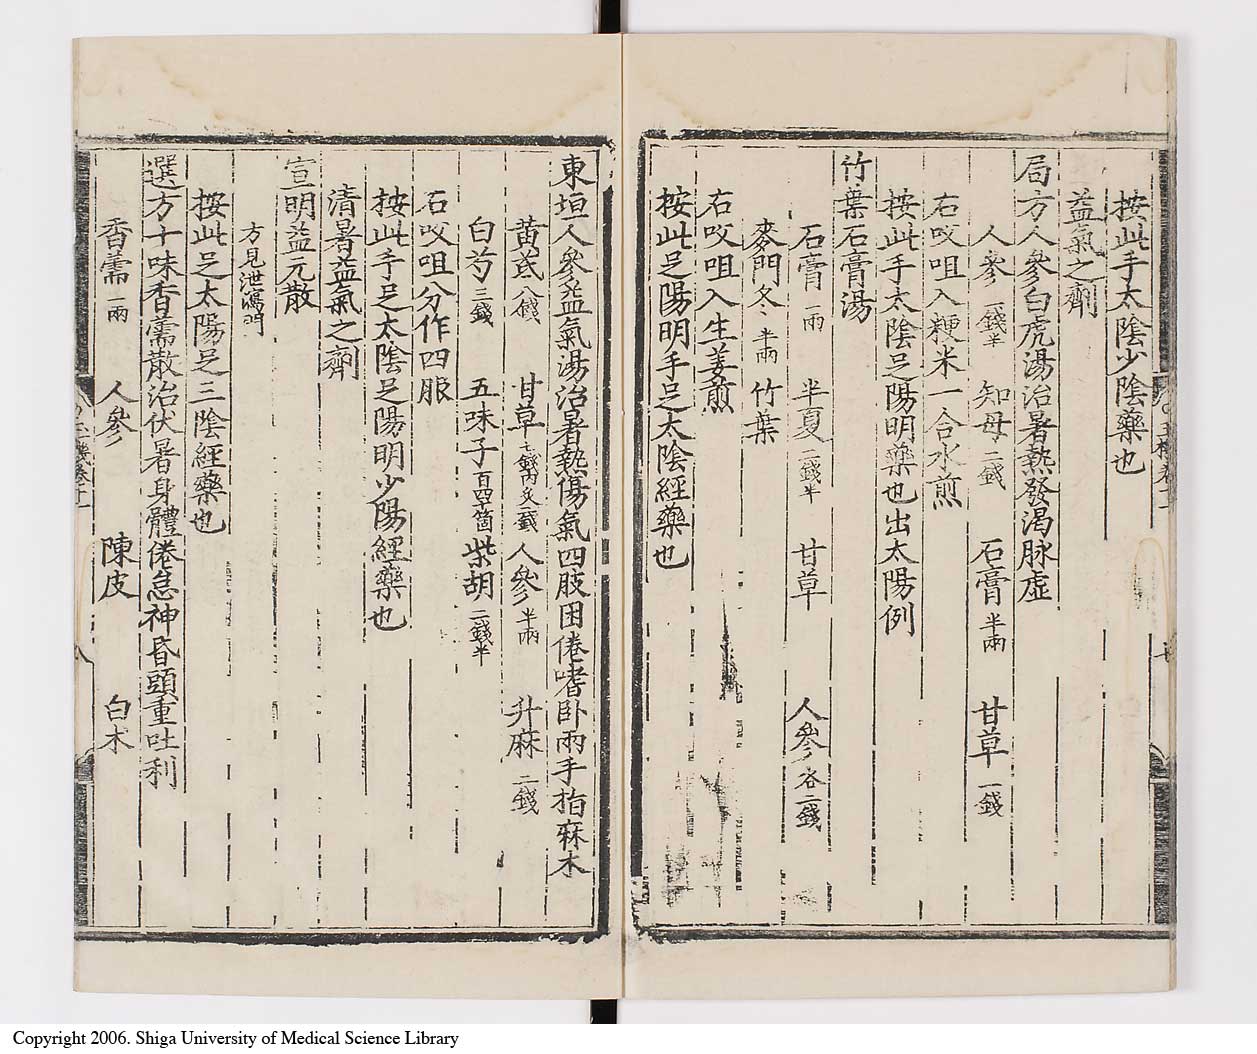 按此手太陰少陰藥也
益氣之劑
局方人參白虎湯治暑熱發渴脉虛
人參一錢半 知母二錢 石膏半兩 甘草一錢
右㕮咀入粳米一合水煎
按此手太陰足陽明藥也出太陽例
竹葉石膏湯
石膏一兩 半夏二錢半 甘草 人參各二錢
麥門冬半兩 竹葉
右㕮咀入生姜煎
按此足陽明手足太陰經藥也
東垣人參益氣湯治暑熱傷氣四肢困倦嗜卧兩手指麻木
黃芪八錢 甘草七錢內炙二錢 人參半兩 升麻二錢
白芍三錢 五味子百四十箇 柴胡二錢半
右㕮咀分作四服
按此手足太陰足陽明少陽經藥也
清暑益氣之劑
宣明益元散
方見泄瀉門
按此足太陽足三陰經藥也
選方十味香薷散治伏暑身體倦怠神昏頭重吐利
香薷一兩 人參 陳皮 白术
Copyright 2006. Shiga University of Medical Science Library